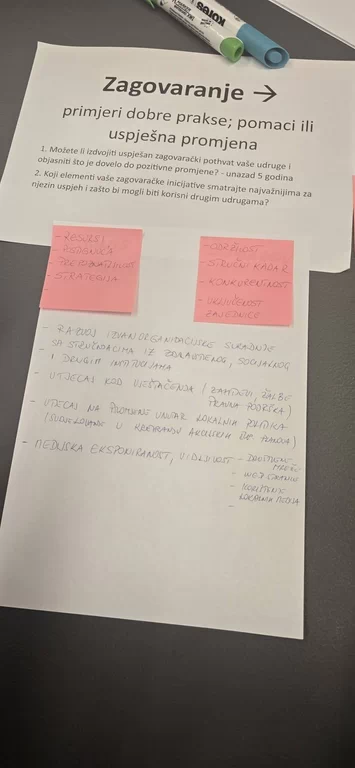 Kores
Zagovaranje →
primjeri dobre prakse; pomaci ili
uspješna promjena
1. Možete li izdvojiti uspješan zagovarački pothvat vaše udruge i
objasniti što je dovelo do pozitivne promjene? - unazad 5 godina
2. Koji elementi vaše zagovaračke inicijative smatrate najvažnijima za
njezin uspjeh i zašto bi mogli biti korisni drugim udrugama?
- RESURSI
- STRATEGIJA
- ODRŽIVOST
- STRUČNI KADAR
- KONKURENTNOST
- UKLJUČENOST
ZAJEDNICE
- RAZVOJ IZVANORGANIZACIJSKE SURADNJE
SA STRUČNJACIMA IZ ZDRAVSTVENOG, SOCIJALNOG
I DRUGIH INSTITUCIJA
- UTJECAJ KOD VJEŠTAČENJA (ZAHTJEVI, ŽALBE
PRAVNA PODRŠKA)
- UTJECAJ NA PROMJENE UNUTAR LOKALNIH POLITIKA
(SUDJELOVANJE U KREIRANJU PLANOVA)
- MEDIJSKA EKSPONIRANOST, VIDLJIVOST - DRUŠTVENE
MREŽE
- WEB STRANICE
- KORIŠTENJE
LOKALNIH MEDIJA
-